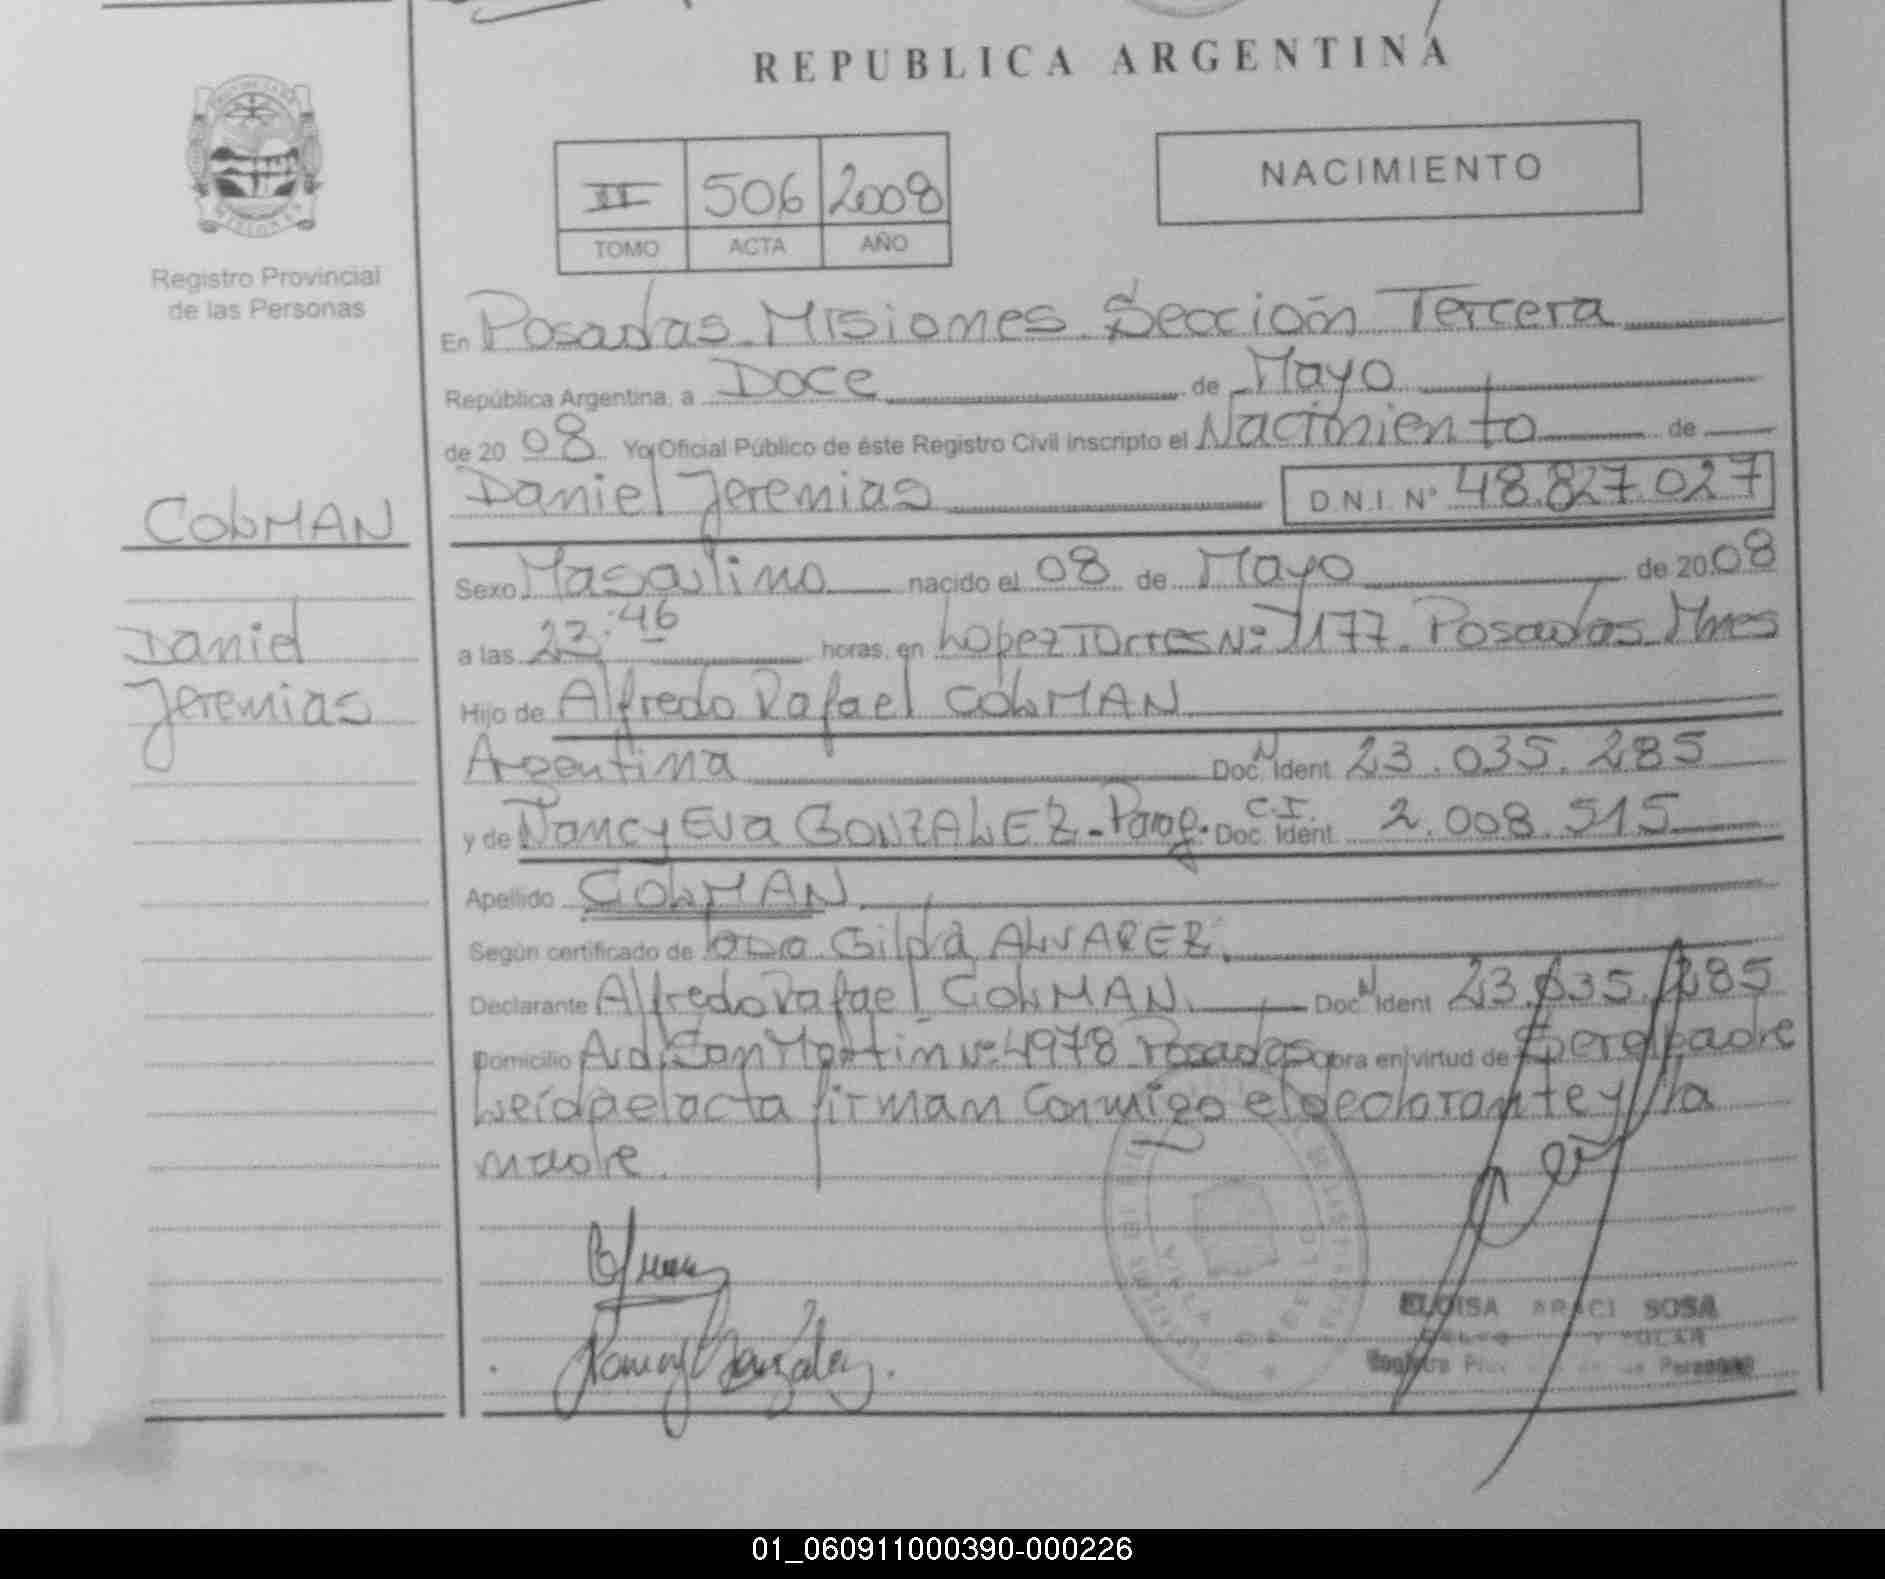 REPUBLICA ARGENTINA
NACIMIENTO
II 506 2008
TOMO ACTA AÑO
Registro Provincial
de las Personas
En Posadas Misiones Sección Tercera
República Argentina, a Doce de Mayo
de 2008 Yo Oficial Público de éste Registro Civil inscripto el Nacimiento de
Daniel Jeremias D.N.I. Nº 48.827.027
COLMAN
Daniel
Jeremias
Sexo Masculino nacido el 08 de Mayo de 2008
a las 22:46 horas, en Lopez Torres Nº 1177. Posadas Mnes
Hijo de Alfredo Rafael COLMAN
Argentina Doc. N Ident 23.035.285
y de Nancy Eva GONZALEZ - Parag. Doc. C.I. Ident 2.008.515
Apellido COLMAN
Según certificado de Gilda ALVAREZ
Declarante Alfredo Rafael COLMAN Doc. N Ident 23.035.285
Domicilio Avd. San Martín Nº 4978 Posadas obra en virtud de Ser el padre
Leída el acta firman conmigo el declarante y la
madre.
Nancy González
ELOISA ARACI SOSA
01_060911000390-000226